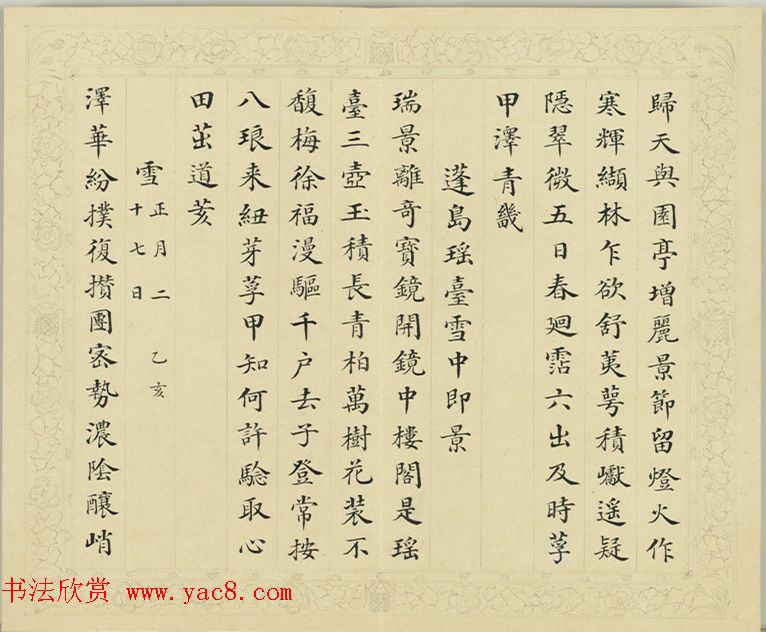 歸天與園亭增麗景節留燈火作
寒輝纈林乍欲舒荑萼積巘遥疑
隱翠微五日春廻霑六出及時莩
甲澤青畿
蓬島瑶臺雪中即景
瑞景離奇寶鏡開鏡中樓閣是瑶
臺三壺玉積長青柏萬樹花装不
馥梅徐福漫驅千户去子登常按
八琅来紐芽莩甲知何許騐取心
田茁道荄
雪 正月二十七日 乙亥
澤華紛撲復攢團密勢濃陰釀峭
书法欣赏 www.yac8.com